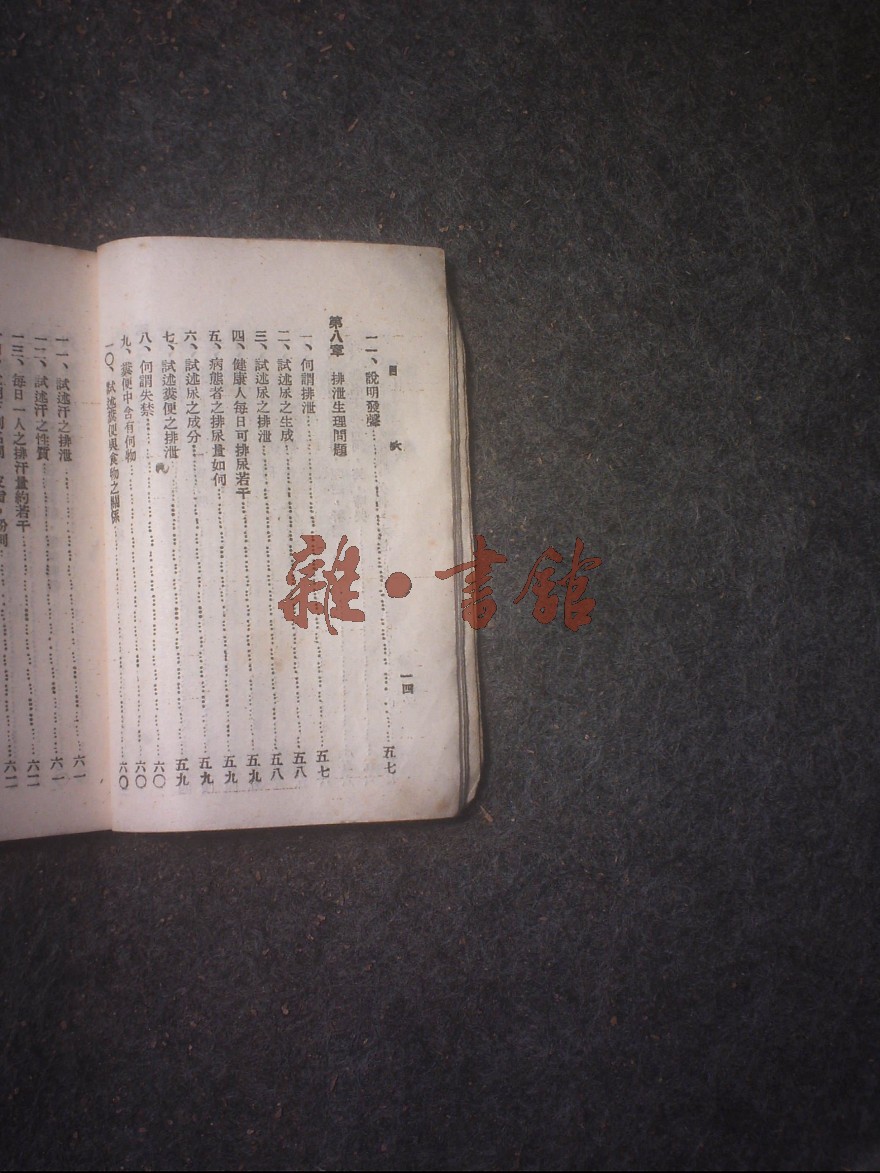 目 次
一四
一一、說明發聲……五七
第八章 排泄生理問題
一、何謂排泄……五七
二、試述尿之生成……五八
三、試述尿之排泄……五八
四、健康人每日可排尿若干……五九
五、病態者之排尿量如何……五九
六、試述尿之成分……五九
七、試述糞便之排泄……五九
八、何謂失禁……六〇
九、糞便中含有何物……六〇
一〇、試述糞便與食物之關係……六〇
一一、試述汗之排泄……六一
一二、試述汗之性質……六一
一三、每日一人之排汗量約若干……六二
六二
雜·書館